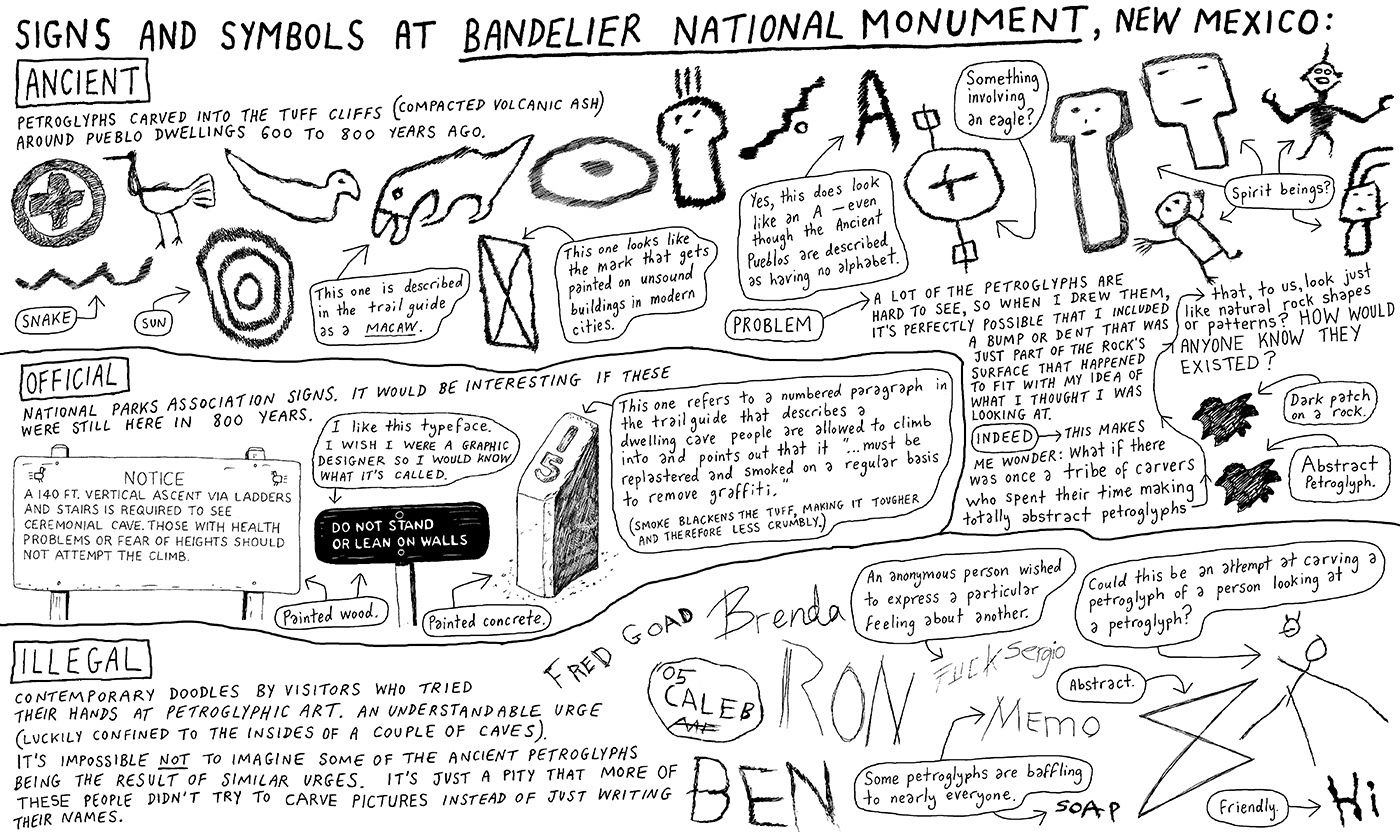 SIGNS AND SYMBOLS AT BANDELIER NATIONAL MONUMENT, NEW MEXICO:
ANCIENT
PETROGLYPHS CARVED INTO THE TUFF CLIFFS (COMPACTED VOLCANIC ASH)
AROUND PUEBLO DWELLINGS 600 TO 800 YEARS AGO.
SNAKE
SUN
This one is described
in the trail guide
as a MACAW.
This one looks like
the mark that gets
painted on unsound
buildings in modern
cities.
A
Yes, this does look
like an A — even
though the Ancient
Pueblos are described
as having no alphabet.
Something
involving
an eagle?
Spirit beings?
PROBLEM
A LOT OF THE PETROGLYPHS ARE
HARD TO SEE, SO WHEN I DREW THEM,
IT'S PERFECTLY POSSIBLE THAT I INCLUDED
A BUMP OR DENT THAT WAS
JUST PART OF THE ROCK'S
SURFACE THAT HAPPENED
TO FIT WITH MY IDEA OF
WHAT I THOUGHT I WAS
LOOKING AT.
INDEED
THIS MAKES
ME WONDER: What if there
was once a tribe of carvers
who spent their time making
totally abstract petroglyphs
that, to us, look just
like natural rock shapes
or patterns? HOW WOULD
ANYONE KNOW THEY
EXISTED?
Dark patch
on a rock.
Abstract
Petroglyph.
OFFICIAL
NATIONAL PARKS ASSOCIATION SIGNS. IT WOULD BE INTERESTING IF THESE
WERE STILL HERE IN 800 YEARS.
NOTICE
A 140 FT. VERTICAL ASCENT VIA LADDERS
AND STAIRS IS REQUIRED TO SEE
CEREMONIAL CAVE. THOSE WITH HEALTH
PROBLEMS OR FEAR OF HEIGHTS SHOULD
NOT ATTEMPT THE CLIMB.
I like this typeface.
I WISH I WERE A GRAPHIC
DESIGNER SO I WOULD KNOW
WHAT IT'S CALLED.
DO NOT STAND
OR LEAN ON WALLS
Painted wood.
Painted concrete.
15
This one refers to a numbered paragraph in
the trail guide that describes a
dwelling cave people are allowed to climb
into and points out that it "...must be
replastered and smoked on a regular basis
to remove graffiti."
(SMOKE BLACKENS THE TUFF, MAKING IT TOUGHER
AND THEREFORE LESS CRUMBLY.)
ILLEGAL
CONTEMPORARY DOODLES BY VISITORS WHO TRIED
THEIR HANDS AT PETROGLYPHIC ART. AN UNDERSTANDABLE URGE
(LUCKILY CONFINED TO THE INSIDES OF A COUPLE OF CAVES).
IT'S IMPOSSIBLE NOT TO IMAGINE SOME OF THE ANCIENT PETROGLYPHS
BEING THE RESULT OF SIMILAR URGES. IT'S JUST A PITY THAT MORE OF
THESE PEOPLE DIDN'T TRY TO CARVE PICTURES INSTEAD OF JUST WRITING
THEIR NAMES.
FRED GOAD
Brenda
"05
CALEB
RON
BEN
An anonymous person wished
to express a particular
feeling about another.
Fuck Sergio
MEMO
Some petroglyphs are baffling
to nearly everyone.
SOAP
Could this be an attempt at carving a
petroglyph of a person looking at
a petroglyph?
Abstract.
Friendly.
Hi